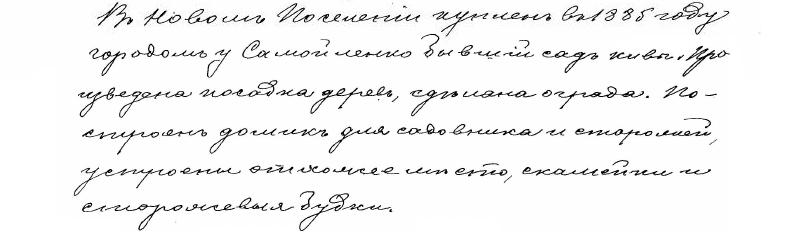 Въ Новомъ Поселеніи купленъ въ 1885 году
городомъ у Самойленко бывшій садъ нивы. Про
изведена посадка деревъ, сдѣлана ограда. По-
строенъ домикъ для садовника и сторожей,
устроены отхожее мѣсто, скамейки и
сторожевыя будки.